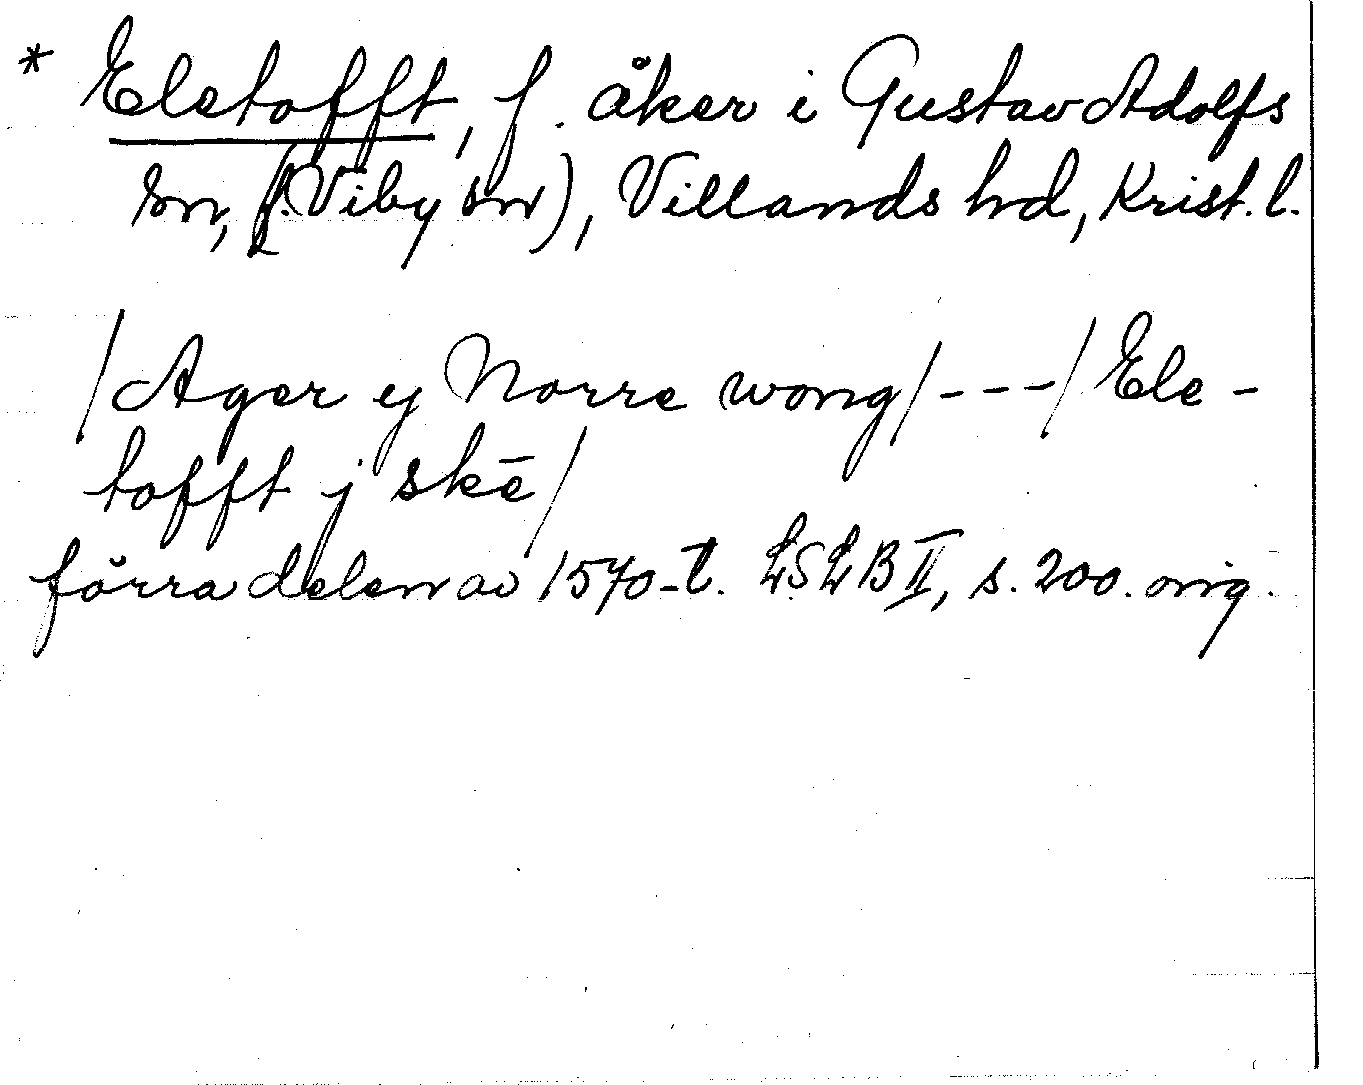 * Eletofft, f. åker i Gustav Adolfs
sn, (f. Viby sn), Villands hd, Krist. l.
/Ager ej Norre wong/---/Ele-
tofft j skē/
förra delen av 1570-t. LSLB II, s. 200. orig.